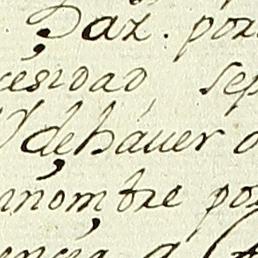 Daz. por
cesidad, sep
dehauer
nombre por
encia, a